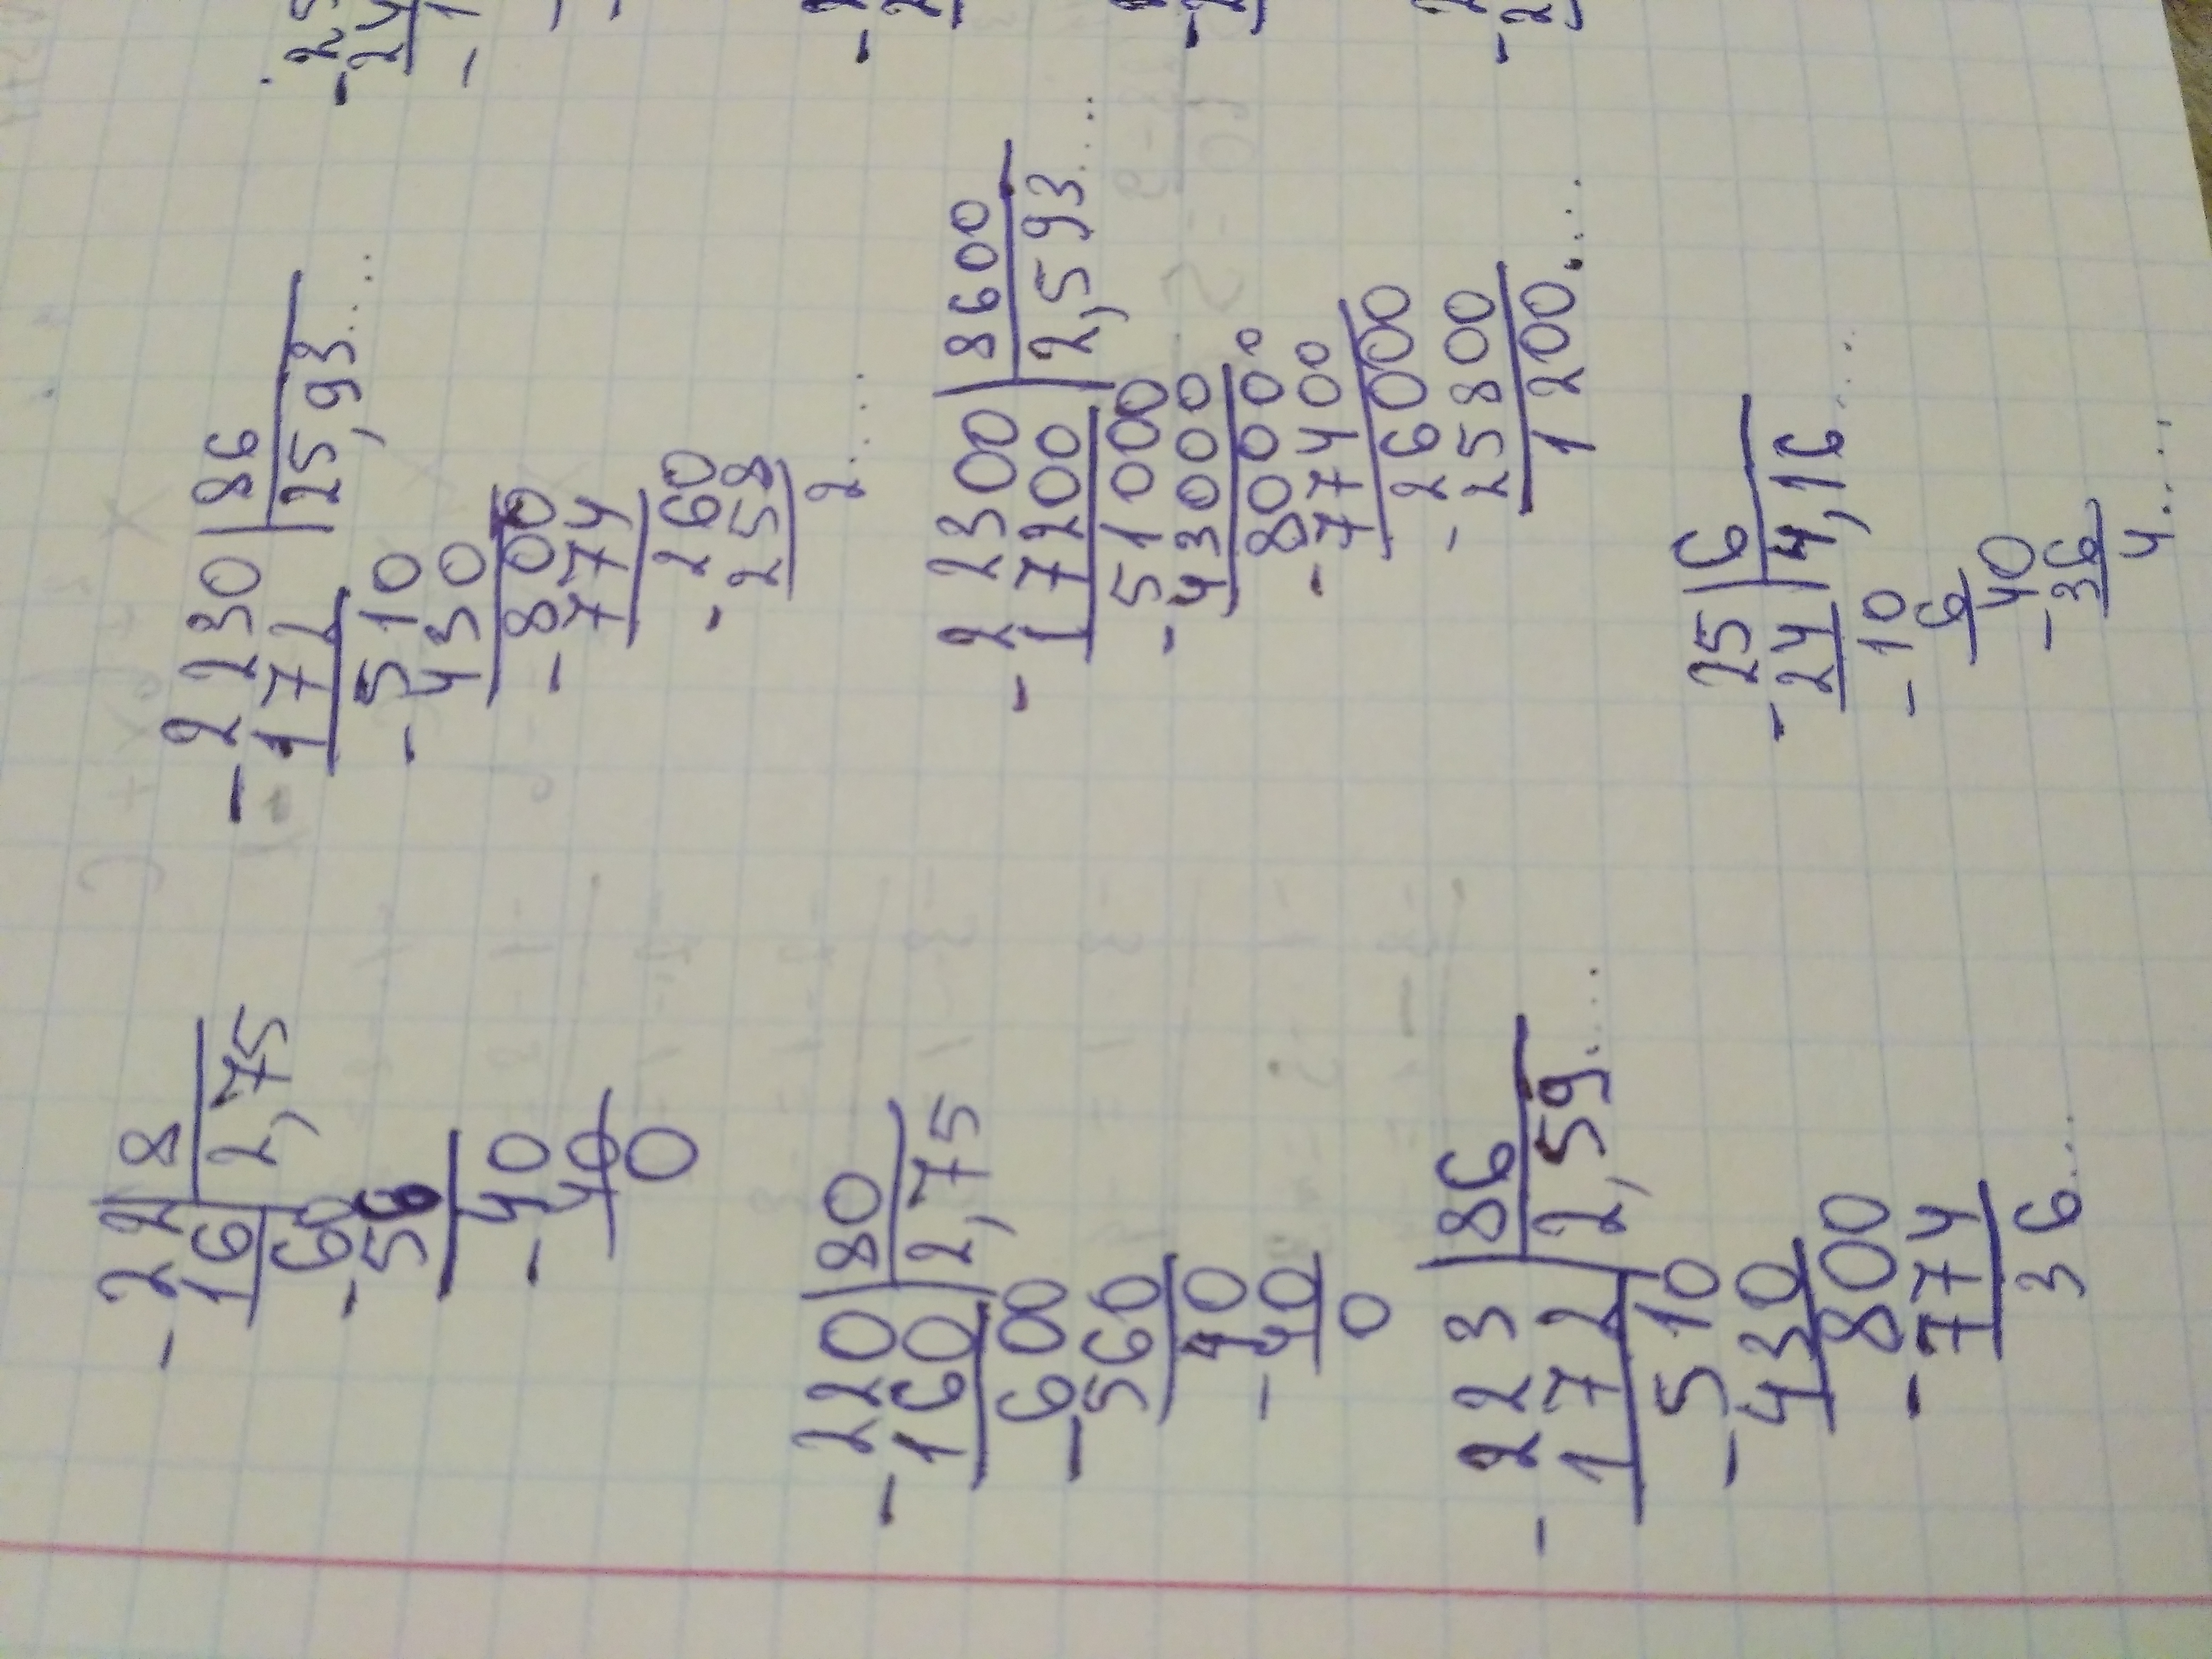 - 22 | 8
16 | 2,75
60
- 56
40
- 40
0
- 220 | 80
160 | 2,75
600
- 560
40
- 40
0
- 223 | 86
172 | 2,59....
510
- 430
800
- 774
36...
- 2230 | 86
172 | 25,93....
510
- 430
800
- 774
260
- 258
2....
- 22300 | 8600
17200 | 2,593....
51000
- 43000
80000
- 77400
26000
- 25800
1200....
25 | 6
- 24 | 4,16....
10
- 6
40
- 36
4....